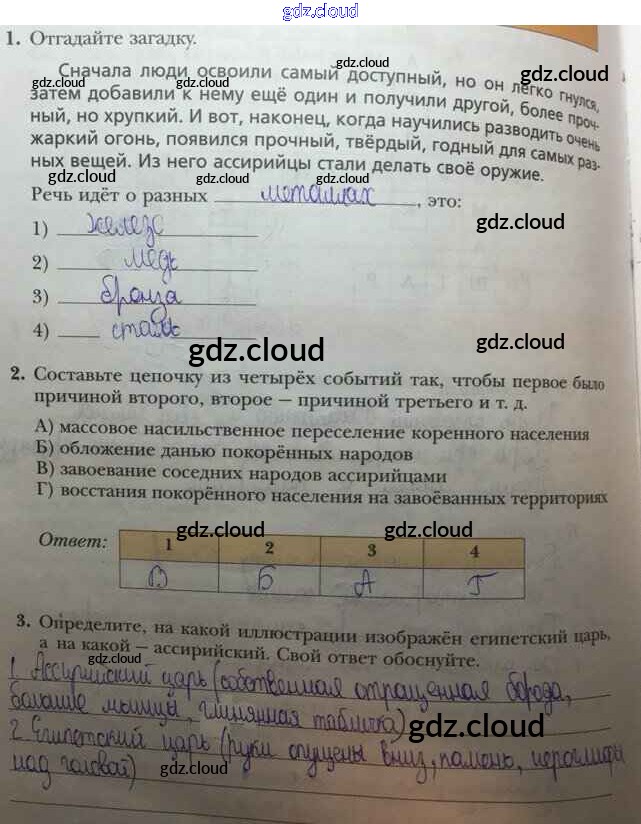 gdz.cloud
1. Отгадайте загадку.
gdz.cloud gdz.cloud gdz.cloud
Сначала люди освоили самый доступный, но он легко гнулся,
затем добавили к нему ещё один и получили другой, более проч-
ный, но хрупкий. И вот, наконец, когда научились разводить очень
жаркий огонь, появился прочный, твёрдый, годный для самых раз-
ных вещей. Из него ассирийцы стали делать своё оружие.
gdz.cloud gdz.cloud gdz.cloud
Речь идёт о разных металлах, это:
1) железо
gdz.cloud
2) медь
3) бронза
4) сталь
gdz.cloud gdz.cloud
2. Составьте цепочку из четырёх событий так, чтобы первое было
причиной второго, второе — причиной третьего и т. д.
А) массовое насильственное переселение коренного населения
Б) обложение данью покорённых народов
В) завоевание соседних народов ассирийцами
Г) восстания покорённого населения на завоёванных территориях
gdz.cloud gdz.cloud
Ответ: 1 2 3 4
В Б А Г
3. Определите, на какой иллюстрации изображён египетский царь,
а на какой — ассирийский. Свой ответ обоснуйте.
gdz.cloud
1. Ассирийский царь (собственная отращенная борода,
большие мышцы, глинянная табличка)
gdz.cloud
2. Египетский царь (руки опущены вниз,
над головой)
gdz.cloud gdz.cloud
gdz.cloud